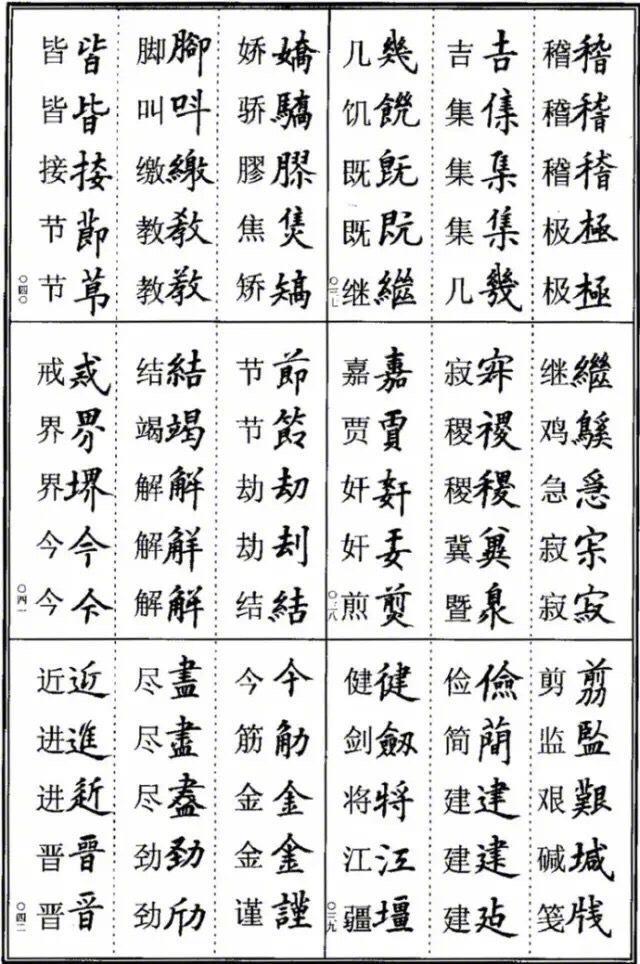 稽稽 稽稽 稽稽 极極 极極
吉吉 集集 集集 集集 几幾
几幾 饥饑 既旣 既既 继繼
〇三七
继繼 鸡鷄 急急 寂寂 寂寂
寂寂 稷稷 稷稷 冀冀 暨暨
嘉嘉 贾賈 奸奸 奸奸 煎煎
〇三八
剪剪 监監 艰艱 碱堿 笺牋
俭儉 简蕳 建建 建建 建建
健健 剑劔 将將 江江 疆壃
〇三九
娇嬌 骄驕 膠膠 焦焦 矫矯
脚腳 叫呌 缴繳 教敎 教教
皆皆 皆皆 接接 节節 节莭
〇四〇
节節 节節 劫劫 劫刦 结結
结結 竭竭 解解 解觧 解解
戒戒 界界 界堺 今今 今今
〇四一
今今 筋筋 金金 金金 谨謹
尽盡 尽盡 尽盡 劲勁 劲劤
近近 进進 进 晋晉 晋晋
〇四二